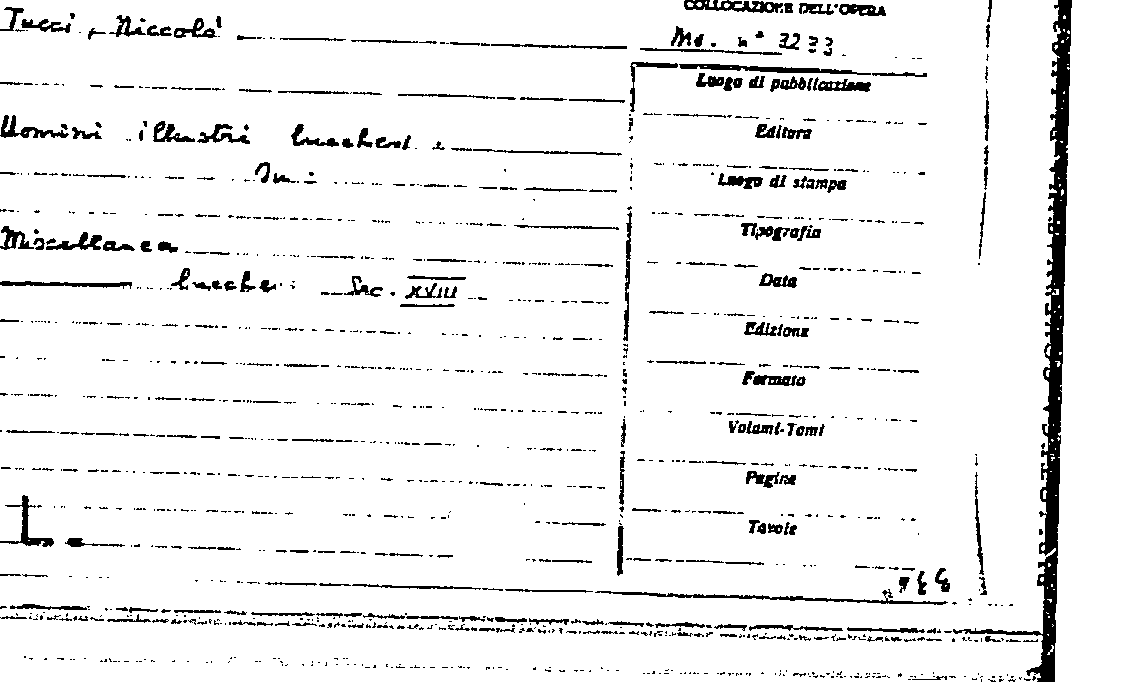 Tucci, Niccolò
Uomini illustri lucchesi.
In:
Miscellanea
lucchese Sec. XVIII
COLLOCAZIONE DELL'OPERA
Ms. n° 3233
Luogo di pubblicazione
Editore
Luogo di stampa
Tipografia
Data
Edizione
Formato
Volumi-Tomi
Pagine
Tavole